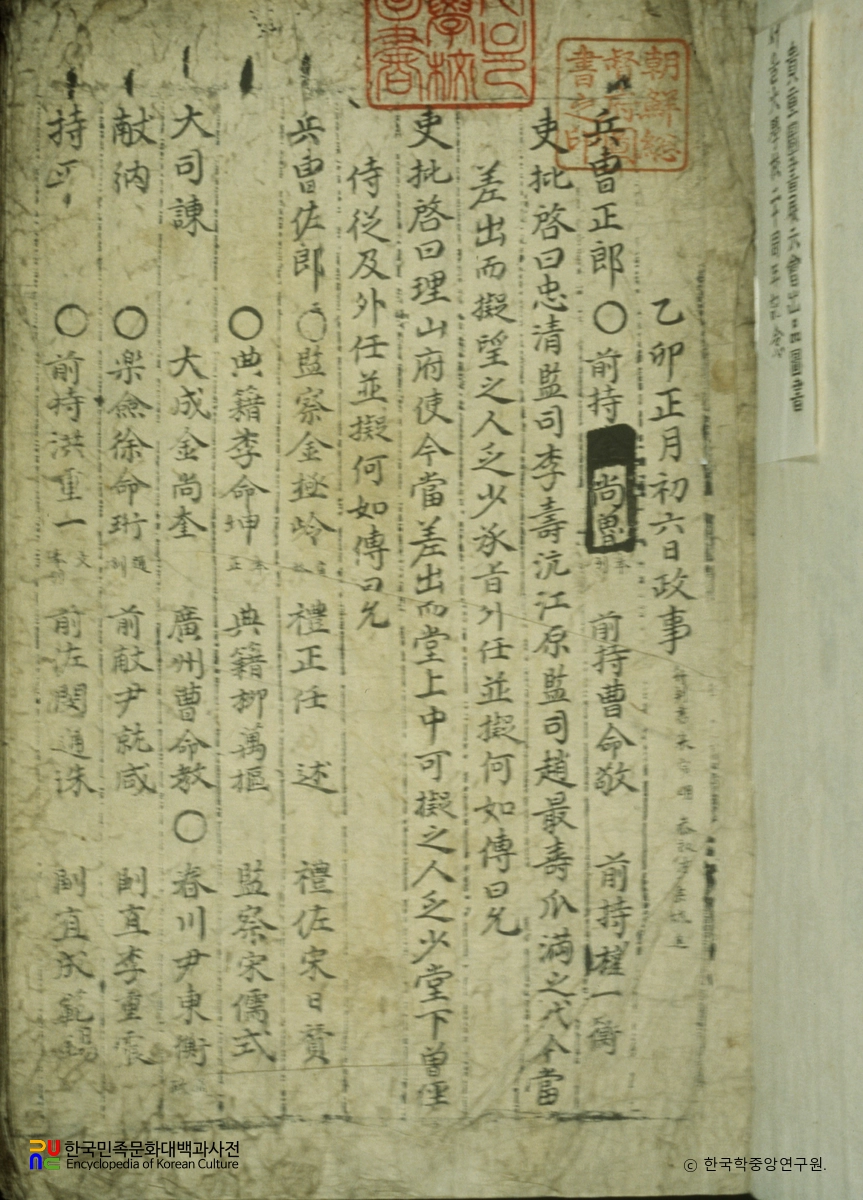 乙卯正月初六日政事
兵曹正郎 ○ 前持 尚曾 前持曹命敬 前持權一衡
吏批啓曰忠清監司李壽沆江原監司趙最壽瓜滿之代今當
差出而擬望之人乏少承旨外任並擬何如傳曰允
吏批啓曰理山府使今當差出而堂上中可擬之人乏少堂下曾經
侍從及外任並擬何如傳曰允
兵曹佐郎 ○ 監察金極岭 禮正任 述 禮佐宋日贊
○ 典籍李命坤 典籍柳萬樞 監察宋儒式
大司諫 大成金尚奎 廣州曹命教 ○ 春川尹東衡
献納 ○ 樂僉徐命珩 前献尹就咸 副直李重震
持平 ○ 前持洪重一 前佐閔通洙 副直成範錫
朝鮮総
督府図
書之印
한국민족문화대백과사전
Encyclopedia of Korean Culture
ⓒ 한국학중앙연구원.